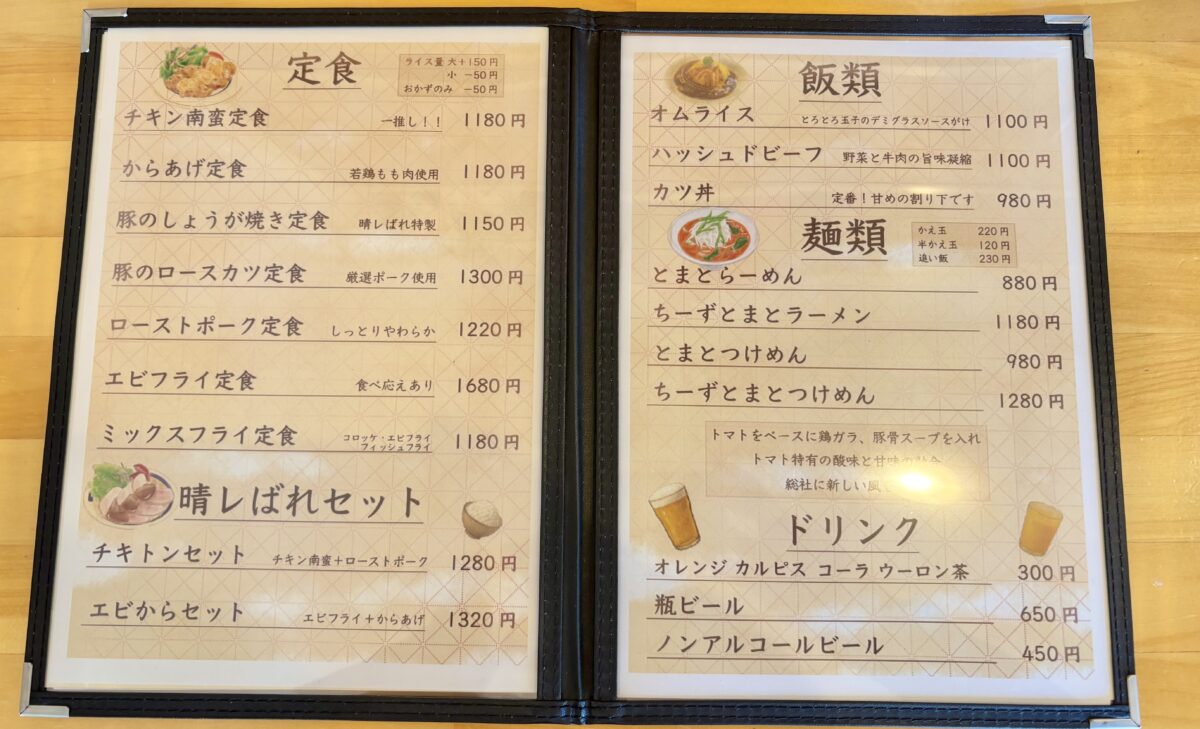 定食
ライス量 大+150円
小 -50円
おかずのみ -50円
チキン南蛮定食 一推し!! 1180円
からあげ定食 若鶏もも肉使用 1180円
豚のしょうが焼き定食 晴レばれ特製 1150円
豚のロースカツ定食 厳選ポーク使用 1300円
ローストポーク定食 しっとりやわらか 1220円
エビフライ定食 食べ応えあり 1680円
ミックスフライ定食 コロッケ・エビフライ 1180円
フィッシュフライ
晴レばれセット
チキトンセット チキン南蛮+ローストポーク 1280円
エビからセット エビフライ+からあげ 1320円
飯類
オムライス とろとろ玉子のデミグラスソースがけ 1100円
ハッシュドビーフ 野菜と牛肉の旨味凝縮 1100円
カツ丼 定番!甘めの割り下です 980円
麺類
かえ玉 220円
半かえ玉 120円
追い飯 230円
とまとらーめん 880円
ちーずとまとラーメン 1180円
とまとつけめん 980円
ちーずとまとつけめん 1280円
トマトをベースに鶏ガラ、豚骨スープを入れ
トマト特有の酸味と甘味の
総社に新しい風
ドリンク
オレンジ カルピス コーラ ウーロン茶 300円
瓶ビール 650円
ノンアルコールビール 450円